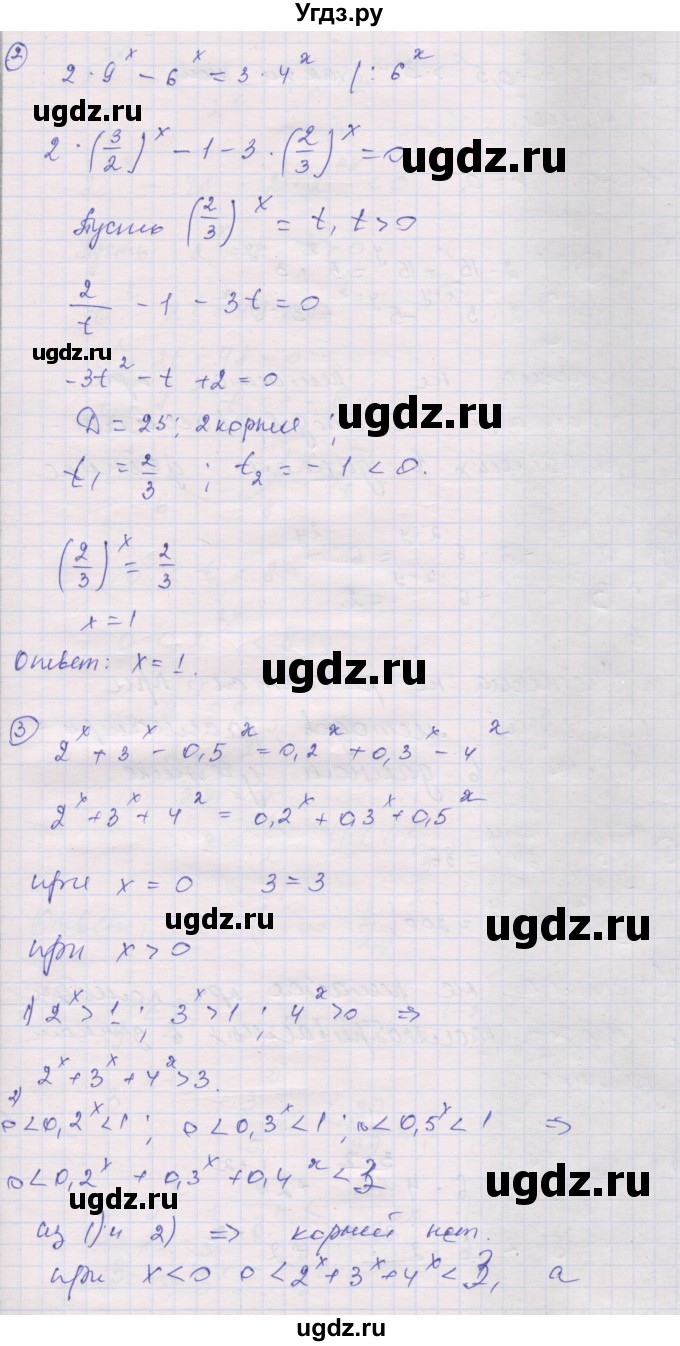 Угдз.ру
② 2·9^x − 6^x = 3·4^x | : 6^x
ugdz.ru
2·(3/2)^x − 1 − 3·(2/3)^x = 0
ugdz.ru
Пусть (2/3)^x = t, t > 0
2/t − 1 − 3t = 0
ugdz.ru
−3t² − t + 2 = 0
ugdz.ru
D = 25; 2 корня;
t₁ = 2/3 ; t₂ = −1 < 0.
(2/3)^x = 2/3
x = 1
Ответ: x = 1.
ugdz.ru
③ 2^x + 3^x − 0,5^x = 0,2^x + 0,3^x − 4^x
2^x + 3^x + 4^x = 0,2^x + 0,3^x + 0,5^x
при x = 0 3 = 3
ugdz.ru
ugdz.ru
при x > 0
1) 2^x > 1 ; 3^x > 1 ; 4^x > 0 ⇒
2^x + 3^x + 4^x > 3.
2) 0 < 0,2^x < 1 ; 0 < 0,3^x < 1 ; 0 < 0,5^x < 1 ⇒
0 < 0,2^x + 0,3^x + 0,4^x < 3
ugdz.ru
ugdz.ru
из 1) и 2) ⇒ корней нет.
при x < 0 0 < 2^x + 3^x + 4^x < 3, а
ugdz.ru